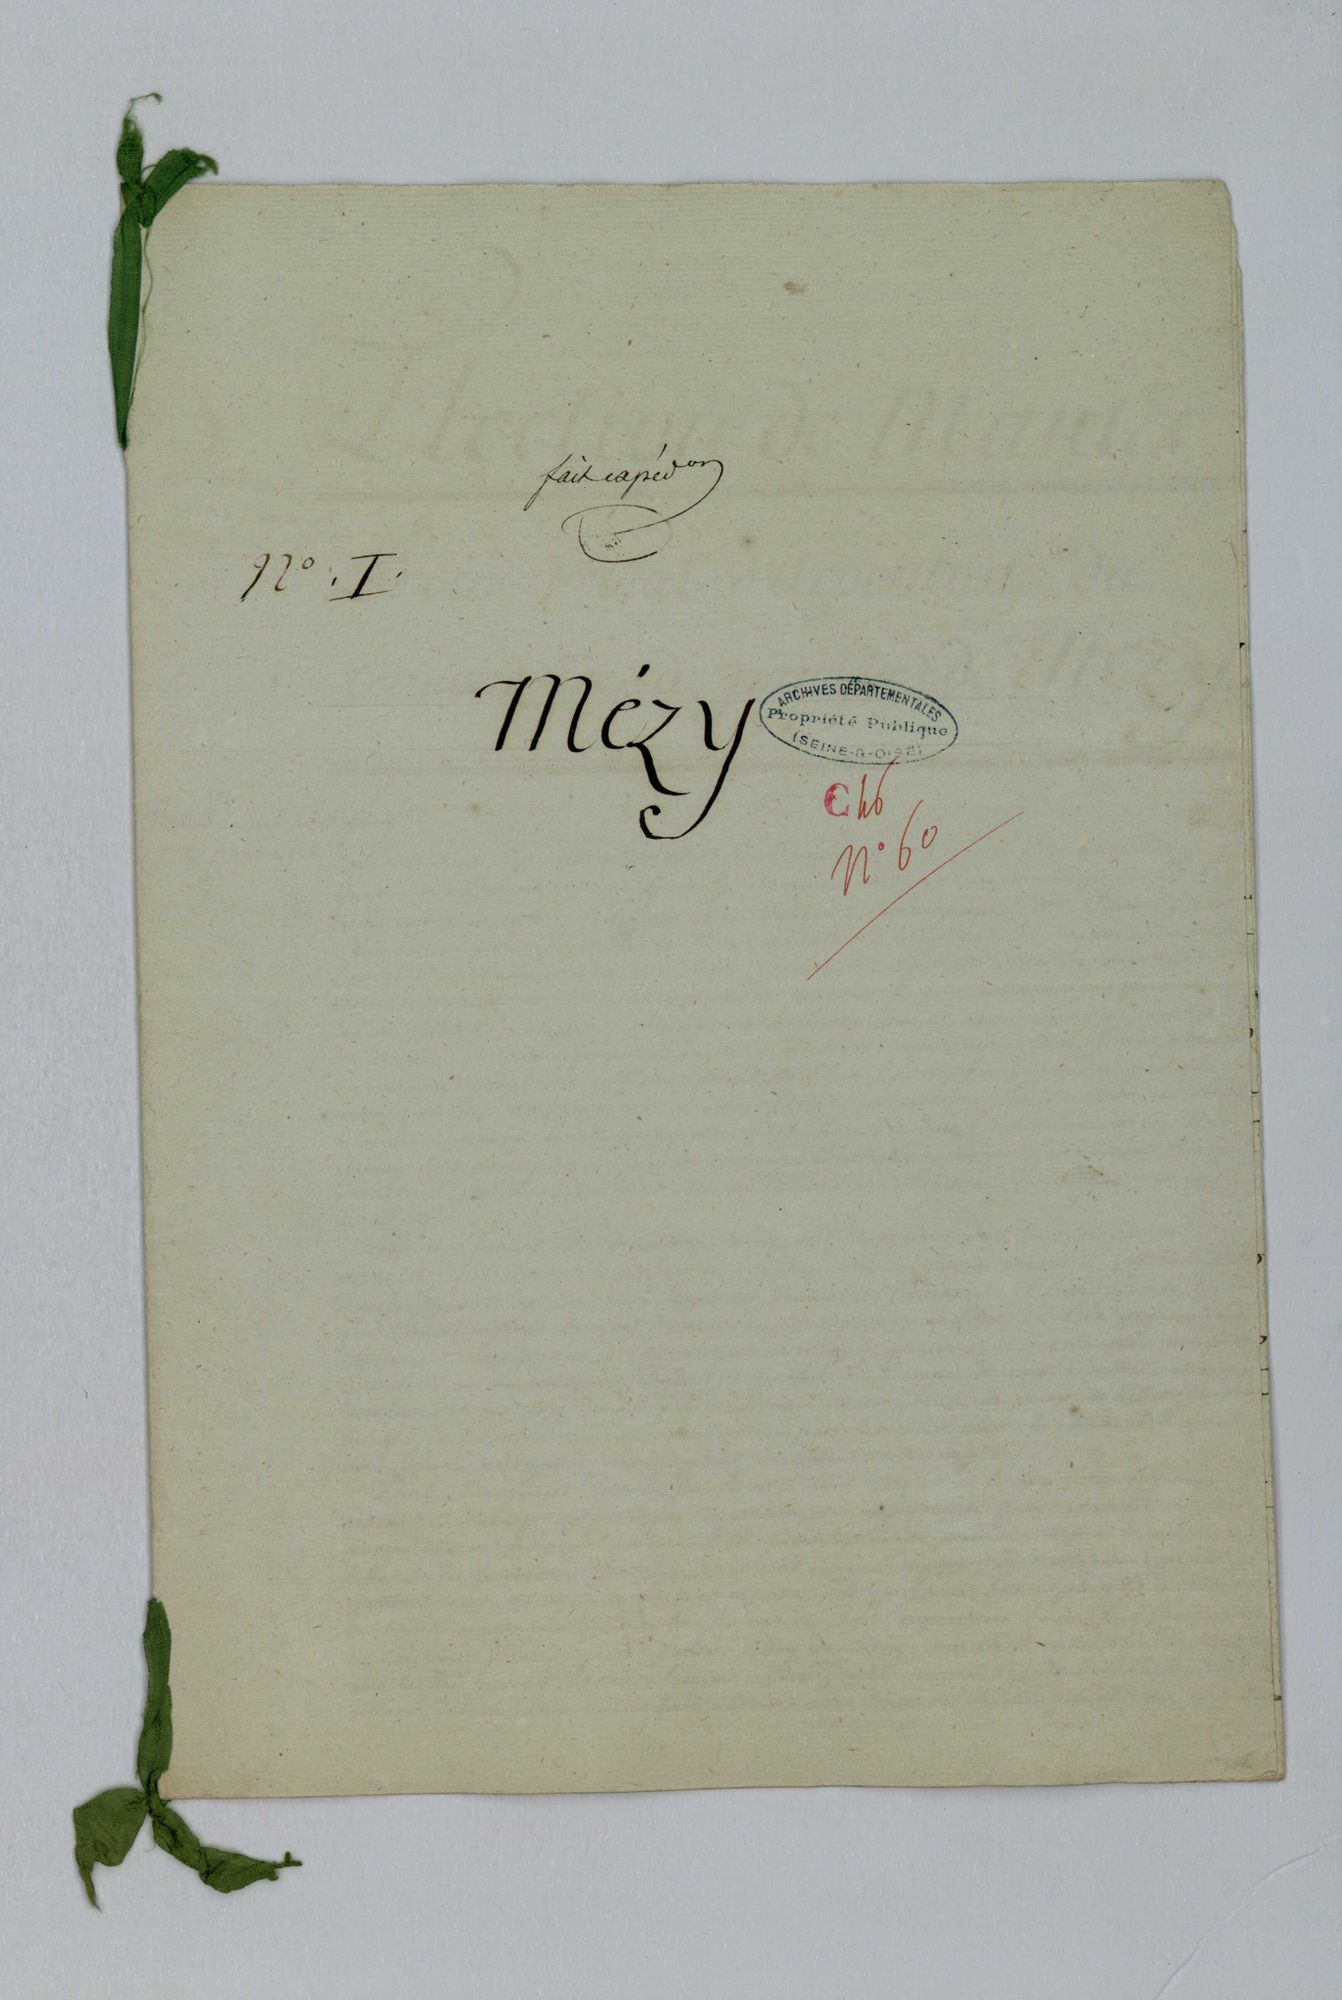 fait expéd.on
N.o I.
Mézy
ARCHIVES DÉPARTEMENTALES
Propriété Publique
(SEINE-&-OISE)
C 46
N° 60